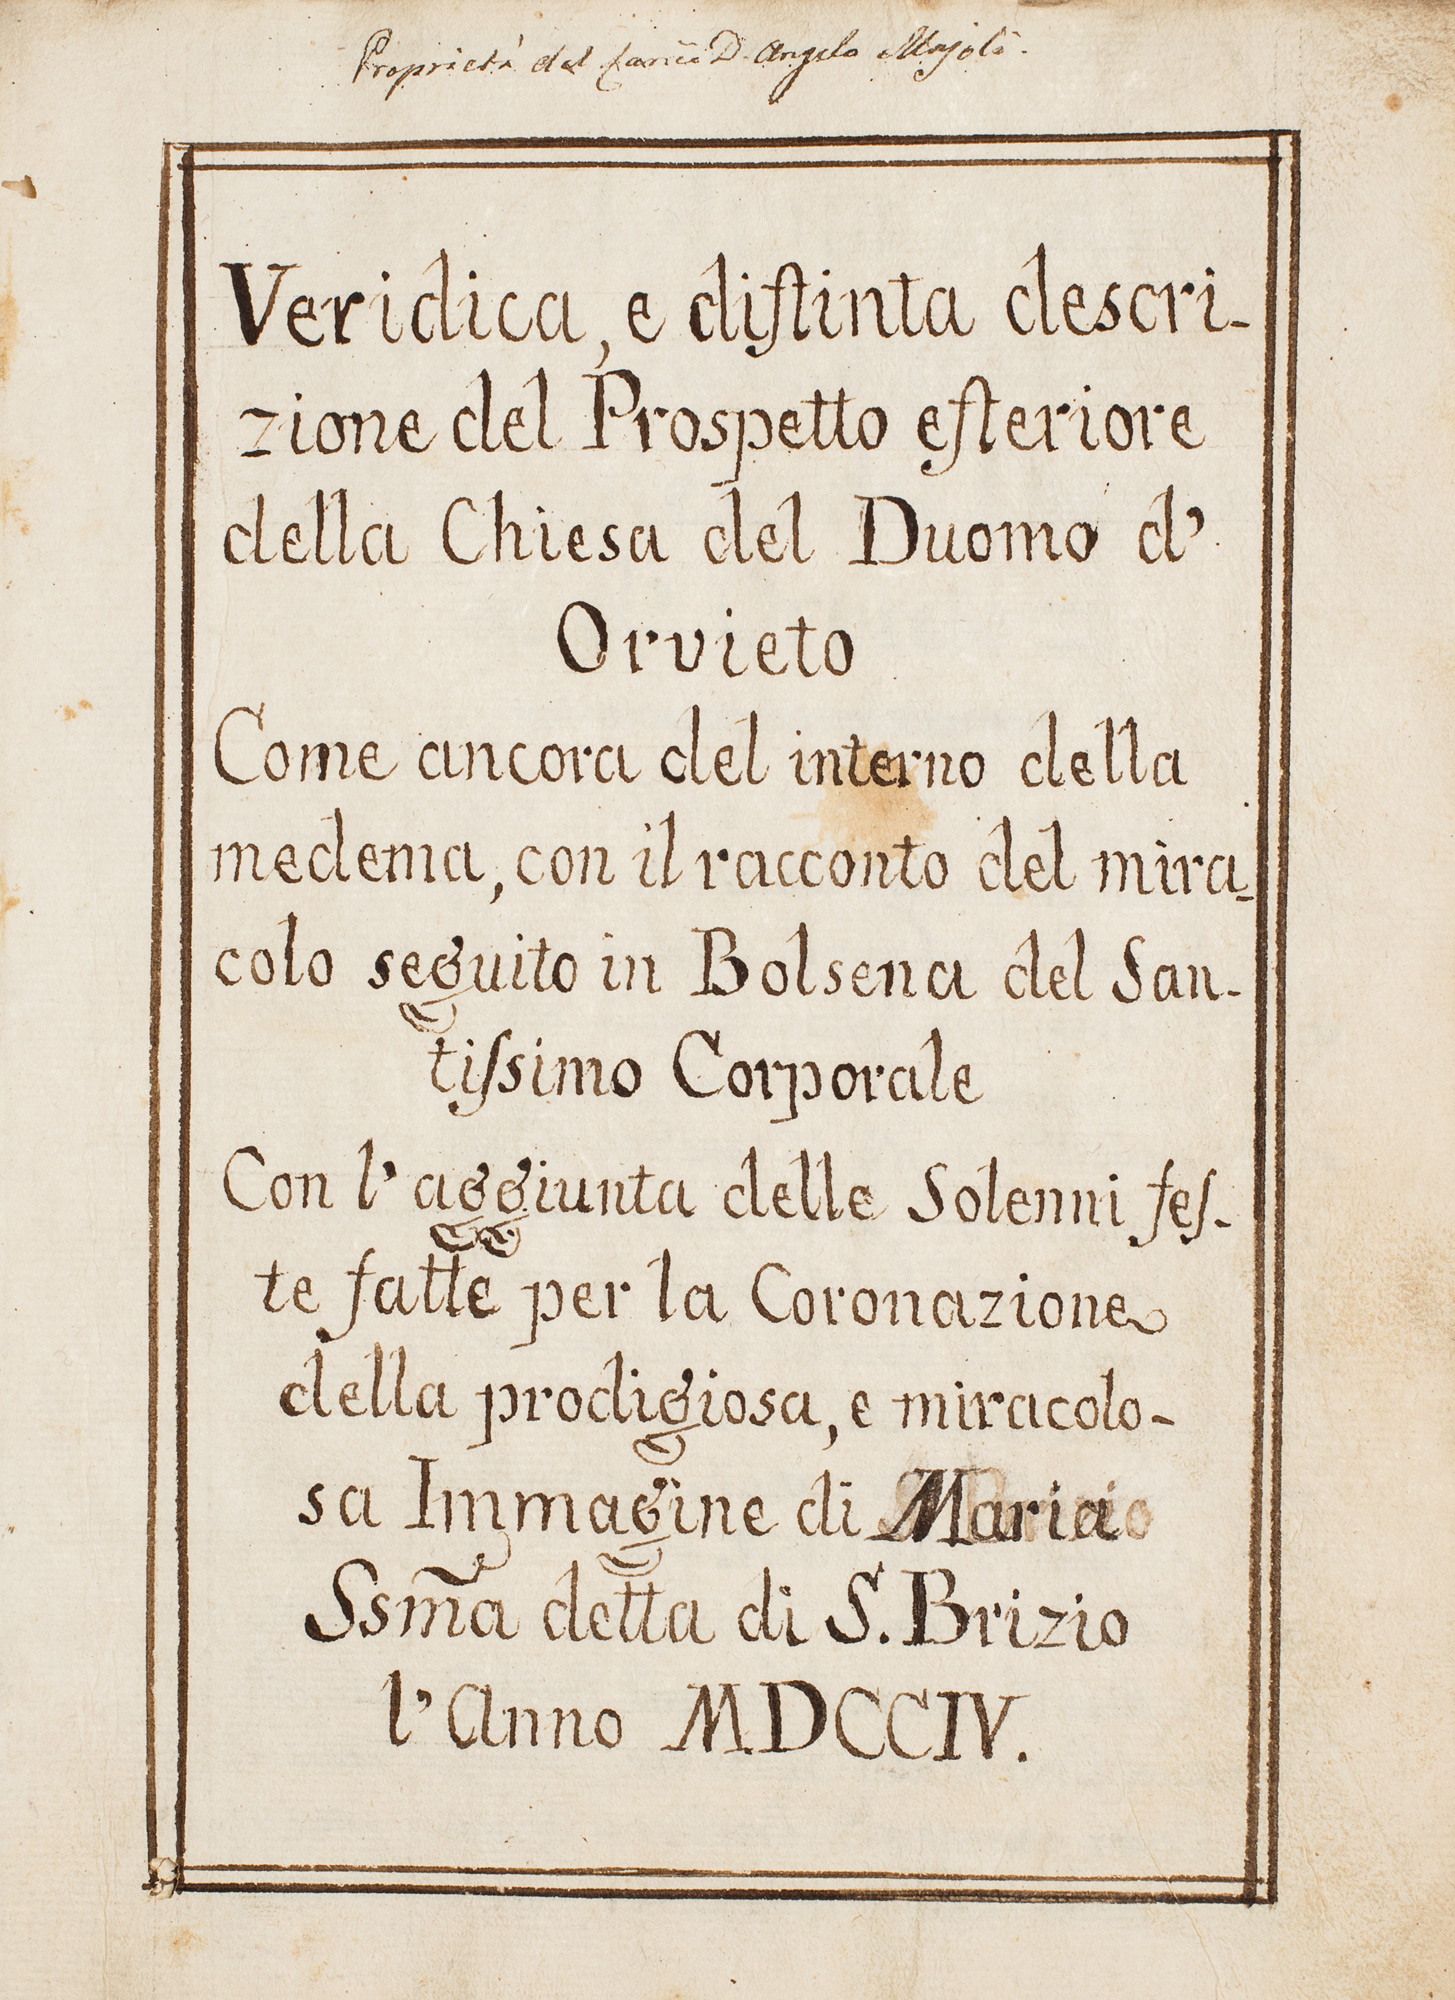 Proprietà del Canco D. Angelo Majoli.
Veridica, e diſtinta descri-
zione del Prospetto eſteriore
della Chiesa del Duomo d'
Orvieto
Come ancora del interno della
medema, con il racconto del mira-
colo seguito in Bolsena del San-
tiſsimo Corporale
Con l'aggiunta delle Solenni feſ-
te fatte per la Coronazione
della prodigiosa, e miracolo-
sa Immagine di Maria
Ssm̃a detta di S. Brizio
l'Anno MDCCIV.